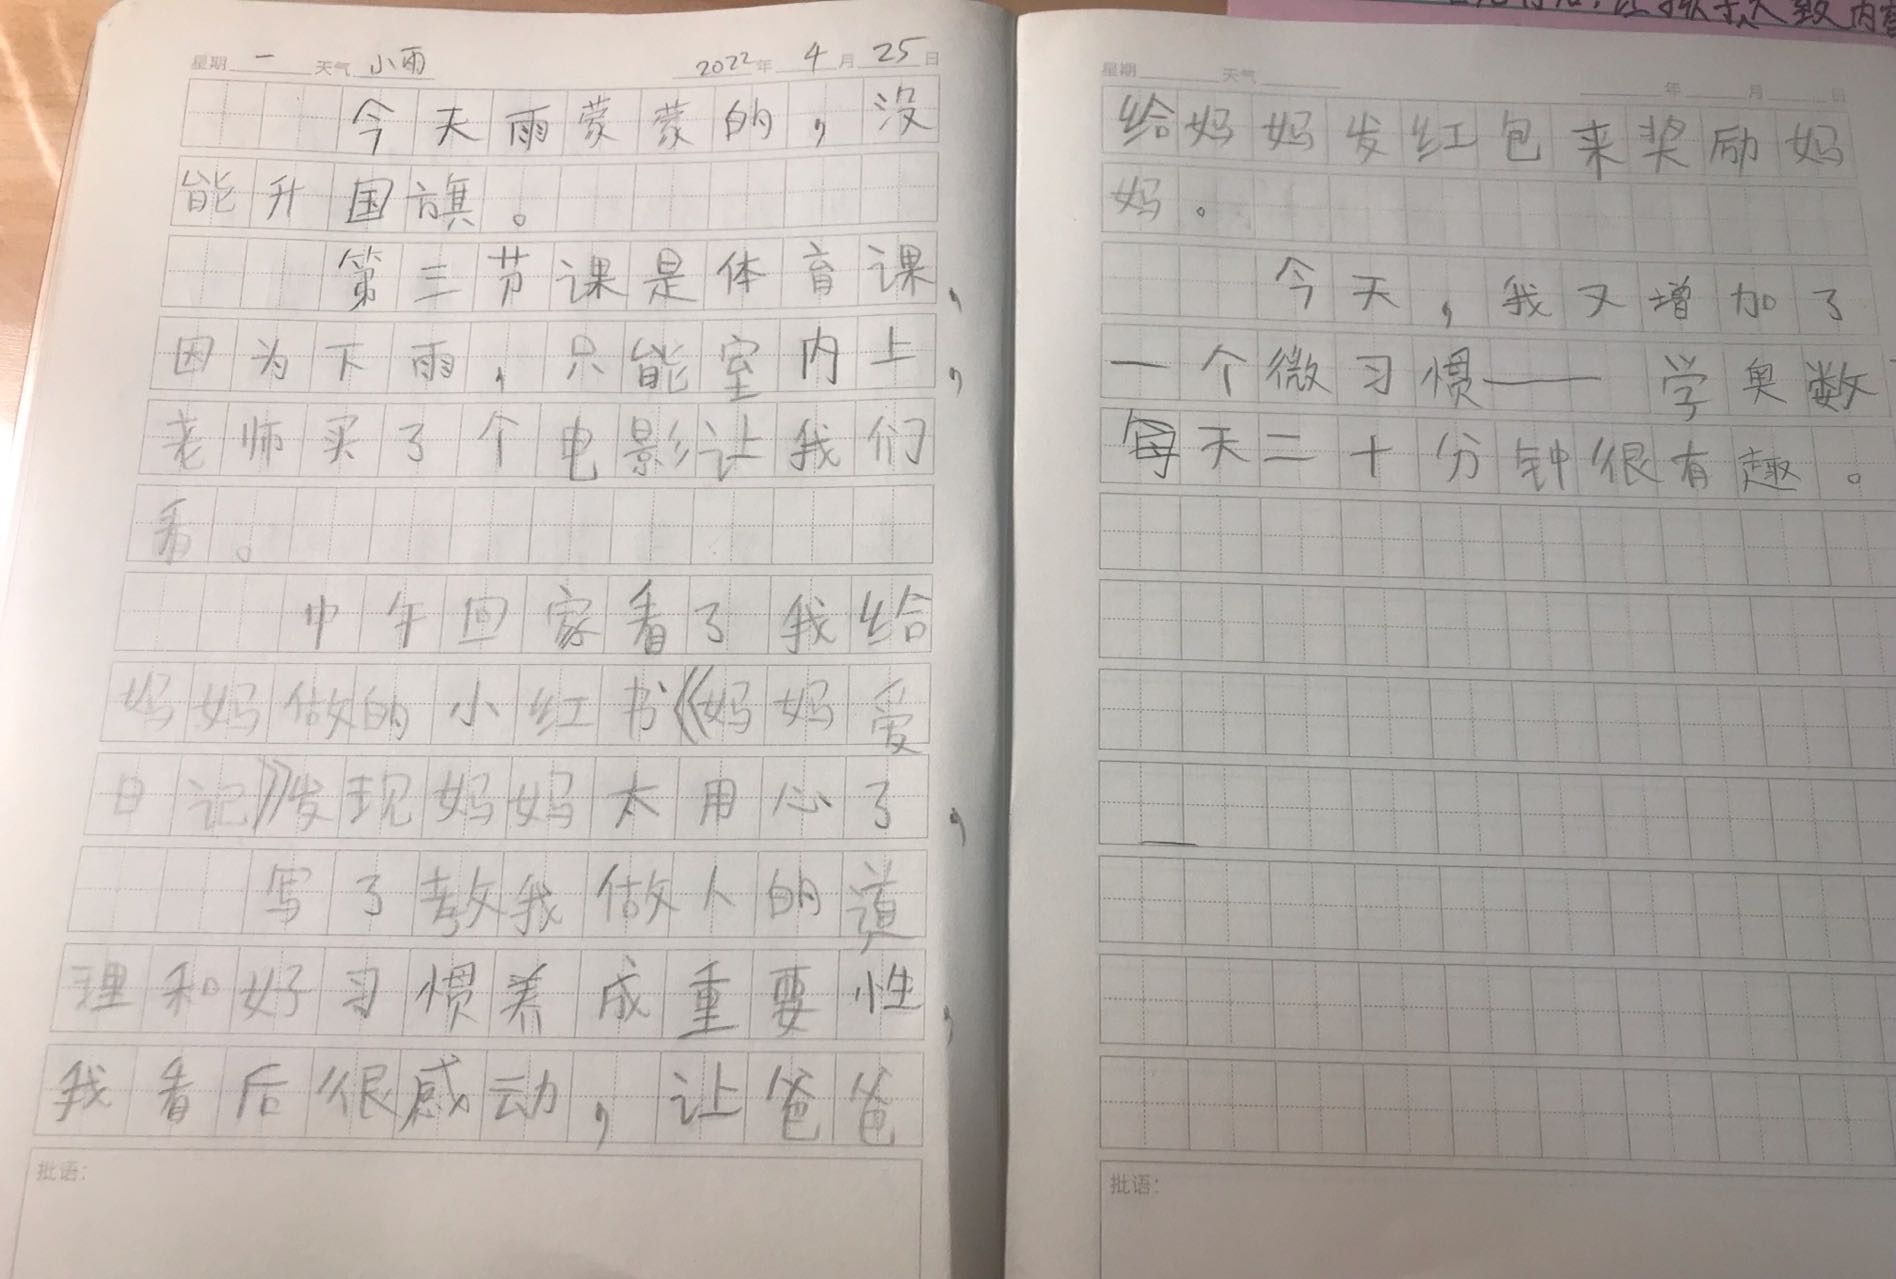 星期 一 天气 小雨 2022年 4月 25日
今天雨蒙蒙的，没
能升国旗。
第三节课是体育课，
因为下雨，只能室内上，
老师买了个电影让我们
看。
中午回家看了我给
妈妈做的小红书《妈妈爱
日记》发现妈妈太用心了，
写了教我做人的道
理和好习惯养成重要性，
我看后很感动，让爸爸
批语：
星期 天气 年 月 日
给妈妈发红包来奖励妈
妈。
今天，我又增加了
一个微习惯——学奥数
每天二十分钟很有趣。
批语：